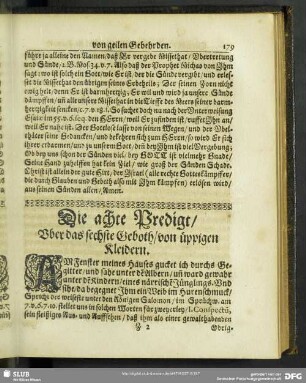 von geilen Gebehrden. 179
führe ja alleine den Namen/ daß Er vergebe Missethat/ Ubertrettung
und Sünde/ 2. B. Mos. 34. v. 7. Also daß der Prophet Michas von Ihm
sagt: wo ist solch ein Gott/ wie Er ist, der die Sünde vergibt/ und erles-
set die Missethat den übrigen seines Erbtheils/ Der seinen Zorn nicht
ewig helt; denn Er ist barmhertzig. Er wil und wird ja unsere Sünde
dämpffen/ uñ alle unsere Missethat in die Tieffe des Meers seiner barm-
hertzigkeit sencken/ c. 7. v. 18. So suchet doch nu nach der Unterweisung
Esaiæ im 55. v. 6. den HErrn/ weil Er zufinden ist/ ruffet Ihn an/
weil Er nahe ist. Der Gottlose lasse von seinen Wegen/ und der Übel-
thäter seine Gedancken/ und bekehre sich zum HErrn/ so wird Er sich
ihrer erbarmen/ und zu unserm Gott/ den bey Ihm ist viel Vergebung.
Ob bey uns schon der Sünden viel/ bey GOTT ist vielmehr Gnade/
Seine Hand zuhelffen hat kein Ziel/ wie groß der Sünden Schade.
Christ ist allein der gute Hirt, der Israel (alle rechte Gotteskämpffer/
die durch Glauben und Gebeth also mit Ihm kämpffen) erlösen wird/
aus seinen Sünden allen/ Amen.
Die achte Predigt/
Über das sechste Geboth/ von üppigen
Kleidern.
AM Fenster meines Hauses gucket ich durchs Ge-
gitter/ und sahe unter dē Albern/ uñ ward gewahr
unter dē Kindern/ eines närrischē Jünglings. Und
sihe/ da begegnet Ihm ein Weib im Hurenschmuck/
Spricht der weiseste unter den Königen Salomon/ im Sprüchw. am
7. v. 6. 7. 10. stellet uns in solchen Worten für zweyerley/ I. Conspectū,
sein fleissiges Aus- und Auffsehen/ das ihm als einer gewalthabenden
Z 2 Obrig-